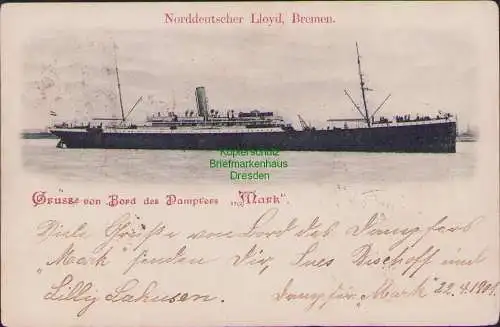 Norddeutscher Lloyd, Bremen.
Kopierschutz
Briefmarkenhaus
Dresden
Grüsse von Bord des Dampfers „Mark".
Viele Grüße von Bord des Dampfers
„Mark" senden Dir, Bischoff und
Lilly
Dampfer „Mark" 22.4.1901